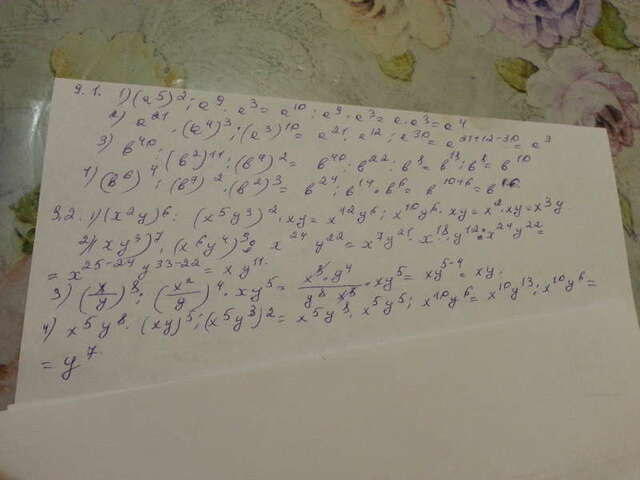 9.1. 1) (a⁵)² : a⁹ · a³ = a¹⁰ : a⁹ · a³ = a · a³ = a⁴
2) a²¹ · (a⁴)³ : (a³)¹⁰ = a²¹ · a¹² : a³⁰ = a²¹⁺¹²⁻³⁰ = a³
3) b⁴⁰ : (b²)¹¹ : (b⁴)² = b⁴⁰ : b²² : b⁸ = b¹⁸ : b⁸ = b¹⁰
4) (b⁶)⁴ : (b⁷)² · (b²)³ = b²⁴ : b¹⁴ · b⁶ = b¹⁰⁺⁶ = b¹⁶.
9.2. 1) (x²y)⁶ : (x⁵y³)² · xy = x¹²y⁶ : x¹⁰y⁶ · xy = x² · xy = x³y
2) (xy³)⁷ · (x⁶y⁴)³ : x²⁴y²² = x⁷y²¹ · x¹⁸y¹² : x²⁴y²² =
= x²⁵⁻²⁴y³³⁻²² = xy¹¹.
3) (x/y)⁸ : (x²/y)⁴ · xy⁵ = x⁸·y⁴/y⁸x⁸ · xy⁵ = xy⁵⁻⁴ = xy.
4) x⁵y⁸ · (xy)⁵ : (x⁵y³)² = x⁵y⁸ · x⁵y⁵ : x¹⁰y⁶ = x¹⁰y¹³ : x¹⁰y⁶ =
= y⁷.